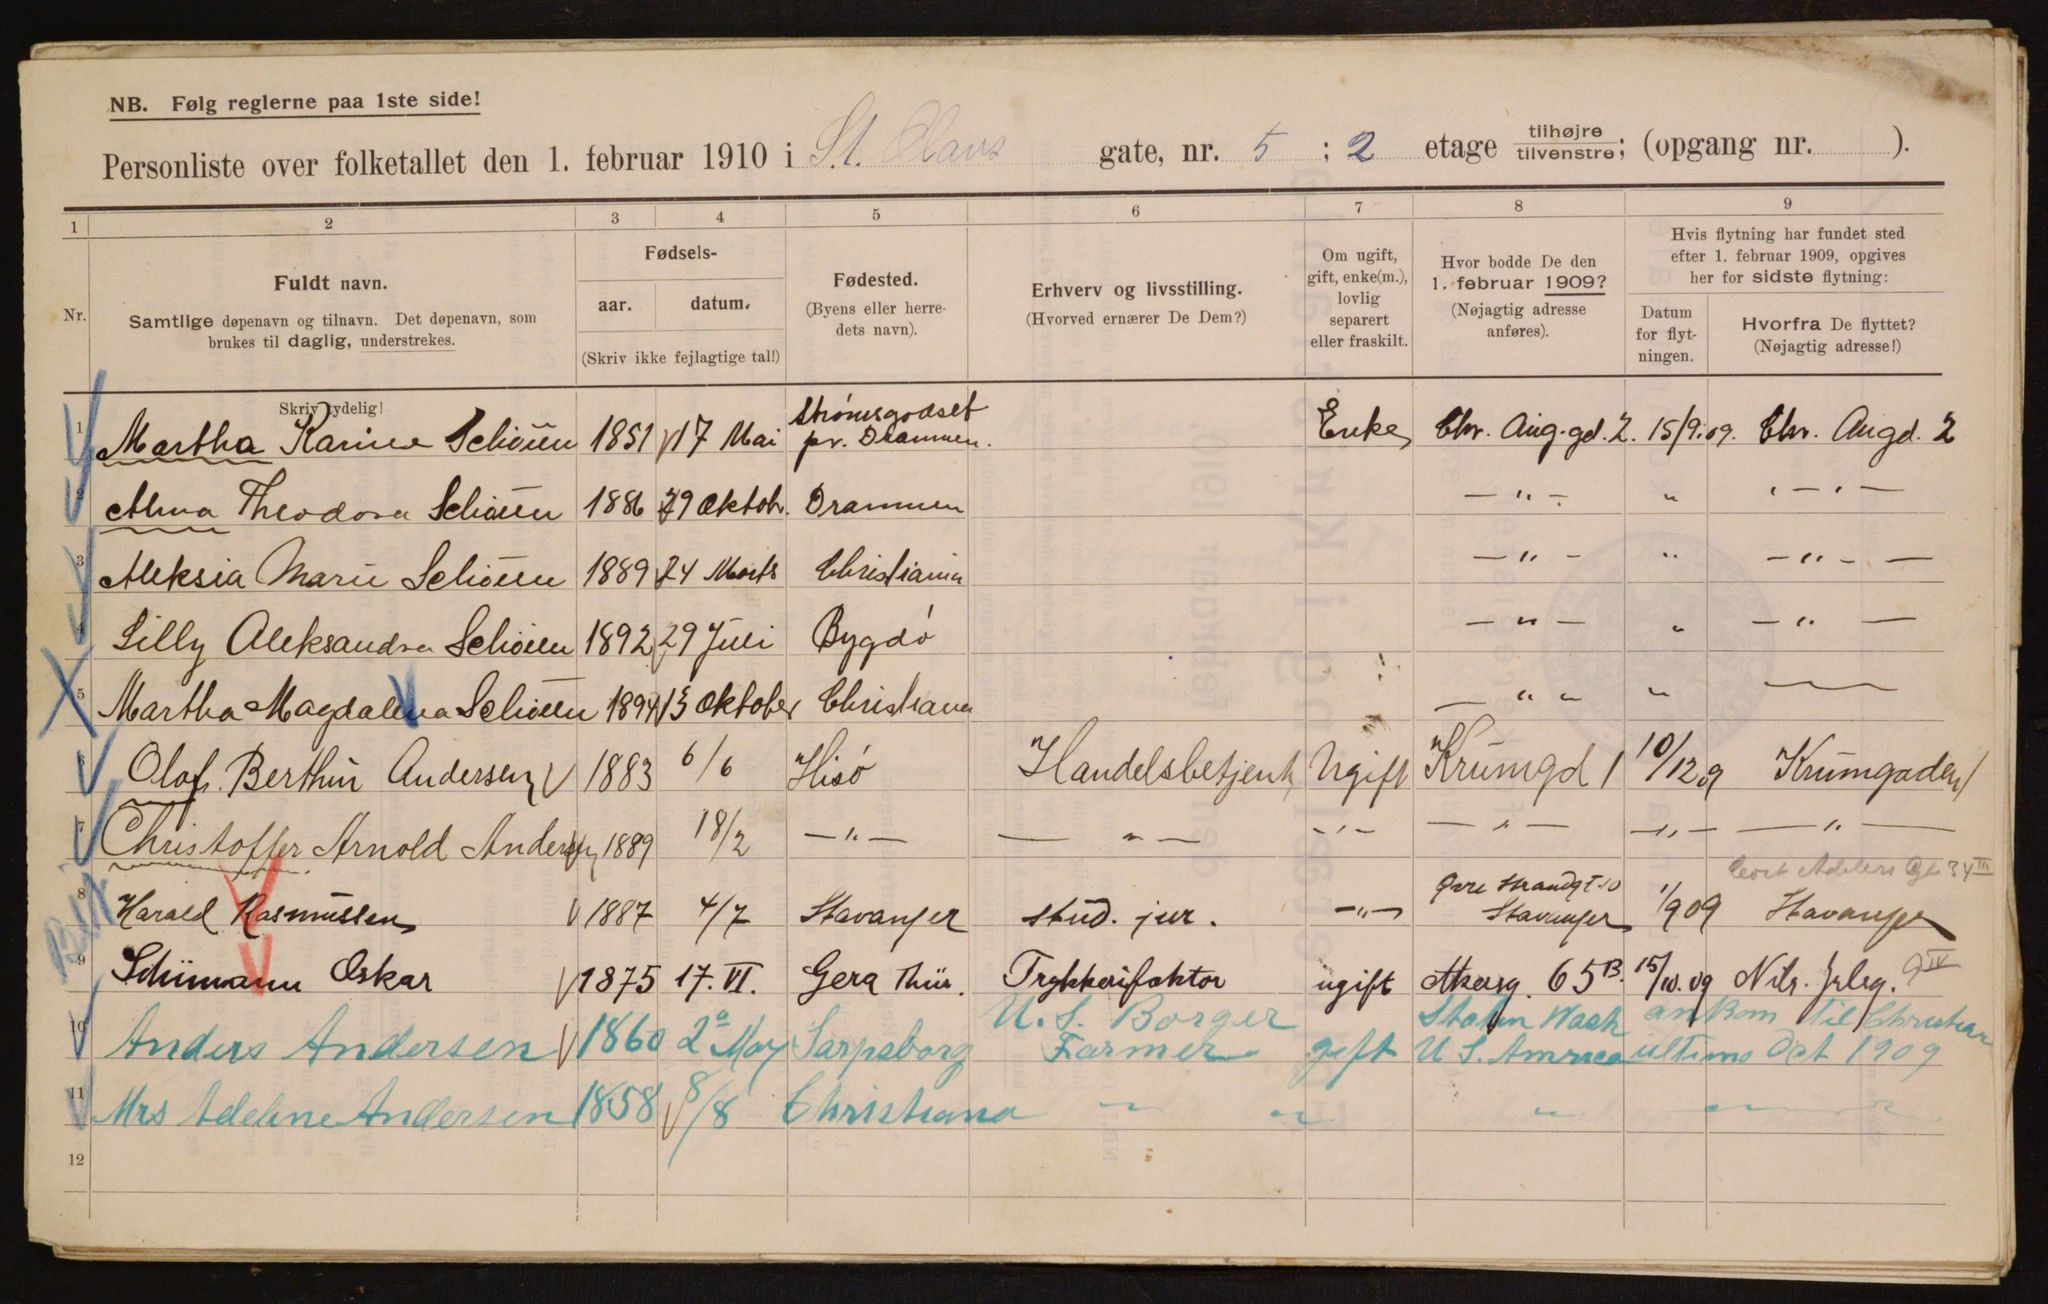 NB. Følg reglerne paa 1ste side!
Personliste over folketallet den 1. februar 1910 i St. Olavs gate, nr. 5 ; 2 etage tilhøjre tilvenstre; (opgang nr. ).
1 2 3 4 5 6 7 8 9
Nr.
Fuldt navn.
Samtlige døpenavn og tilnavn. Det døpenavn, som
brukes til daglig, understrekes.
Skriv tydelig!
Fødsels-
aar. datum.
(Skriv ikke fejlagtige tal!)
Fødested.
(Byens eller herre-
dets navn).
Erhverv og livsstilling.
(Hvorved ernærer De Dem?)
Om ugift,
gift, enke(m.),
lovlig
separert
eller fraskilt.
Hvor bodde De den
1. februar 1909?
(Nøjagtig adresse
anføres).
Hvis flytning har fundet sted
efter 1. februar 1909, opgives
her for sidste flytning:
Datum
for flyt-
ningen.
Hvorfra De flyttet?
(Nøjagtig adresse!)
1 Martha Karine Schøien 1851 17 Mai Strømsgodset pr. Drammen. Enke Chr. Aug. gd. 2. 15/9.09. Chr. Augd. 2
2 Alma Theodora Schøien 1886 29 Oktob. Drammen — " — " — " —
3 Aleksia Marie Schøien 1889 24 Marts Christiania — " — " — " — —
4 Lilly Aleksandra Schøien 1892 29 Juli Bygdø — " — " — " —
5 Martha Magdalena Schøien 1894 13 Oktober Christiana — " " "
6 Olaf Berthin Andersen 1883 6/6 Hisø Handelsbetjent Ugift Krumgd 1 10/12 9 Krumgaden 1
7 Christoffer Arnold Andersen 1889 18/2 — " — — " — - " - — " — — " — — " —
8 Harald Rasmussen 1887 4/7 Stavanger stud. jur. — " — Øvre Strandgt. 10 Stavanger 1/9 09 Cort Adelers Gt 34 III Stavanger
9 Schümann Oskar 1875 17. VI. Gera Thür. Trykkerifaktor ugift Akersg. 65 B. 15/10.09 Nils. Juelsg. 9 IV
10 Anders Andersen 1860 2 May Sarpsborg U. S. Borger Farmer gift Staten Wash U S. America ankom til Christian ultimo Oct 1909
11 Mrs Adeline Andersen 1858 8/8 Christiana " " "
12